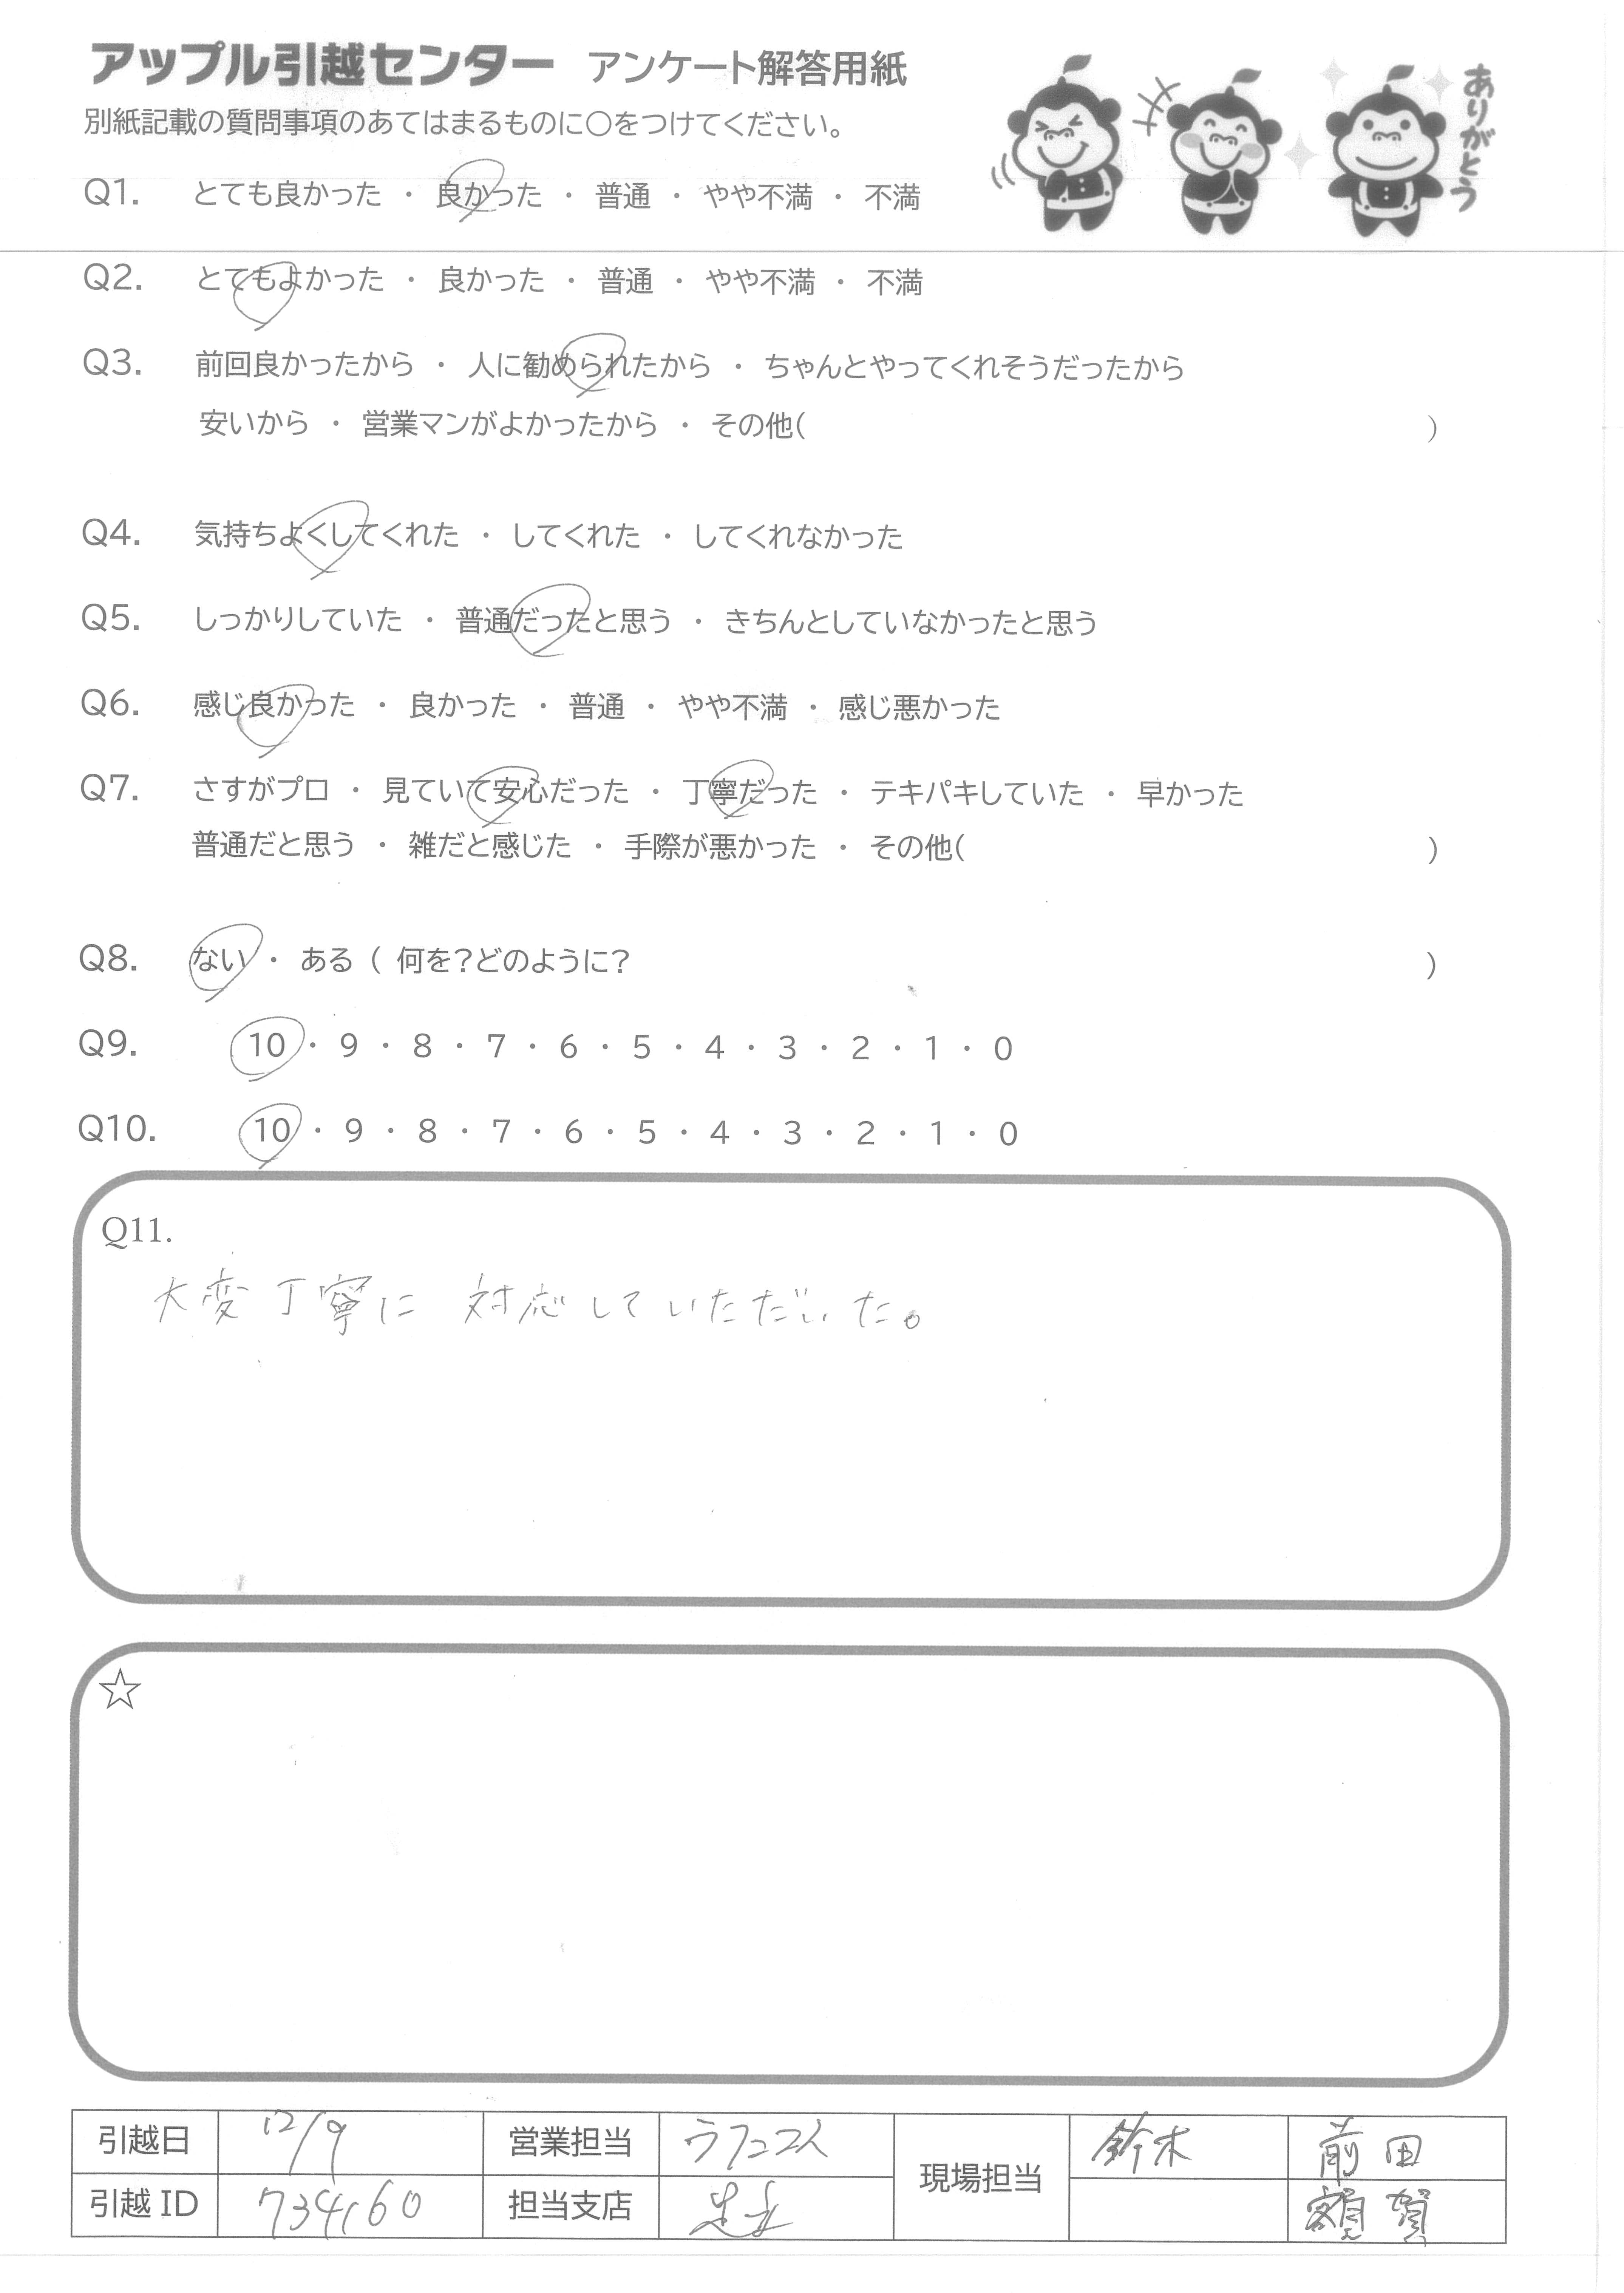 アップル引越センター アンケート解答用紙
別紙記載の質問事項のあてはまるものに○をつけてください。
ありがとう
Q1. とても良かった ・ 良かった ・ 普通 ・ やや不満 ・ 不満
Q2. とてもよかった ・ 良かった ・ 普通 ・ やや不満 ・ 不満
Q3. 前回良かったから ・ 人に勧められたから ・ ちゃんとやってくれそうだったから
安いから ・ 営業マンがよかったから ・ その他( )
Q4. 気持ちよくしてくれた ・ してくれた ・ してくれなかった
Q5. しっかりしていた ・ 普通だったと思う ・ きちんとしていなかったと思う
Q6. 感じ良かった ・ 良かった ・ 普通 ・ やや不満 ・ 感じ悪かった
Q7. さすがプロ ・ 見ていて安心だった ・ 丁寧だった ・ テキパキしていた ・ 早かった
普通だと思う ・ 雑だと感じた ・ 手際が悪かった ・ その他( )
Q8. ない ・ ある ( 何を?どのように? )
Q9. 10 ・ 9 ・ 8 ・ 7 ・ 6 ・ 5 ・ 4 ・ 3 ・ 2 ・ 1 ・ 0
Q10. 10 ・ 9 ・ 8 ・ 7 ・ 6 ・ 5 ・ 4 ・ 3 ・ 2 ・ 1 ・ 0
Q11.
大変丁寧に 対応していただいた。
☆
引越日 12/9 営業担当 現場担当 鈴木 前田
引越 ID 734160 担当支店 足立 額賀